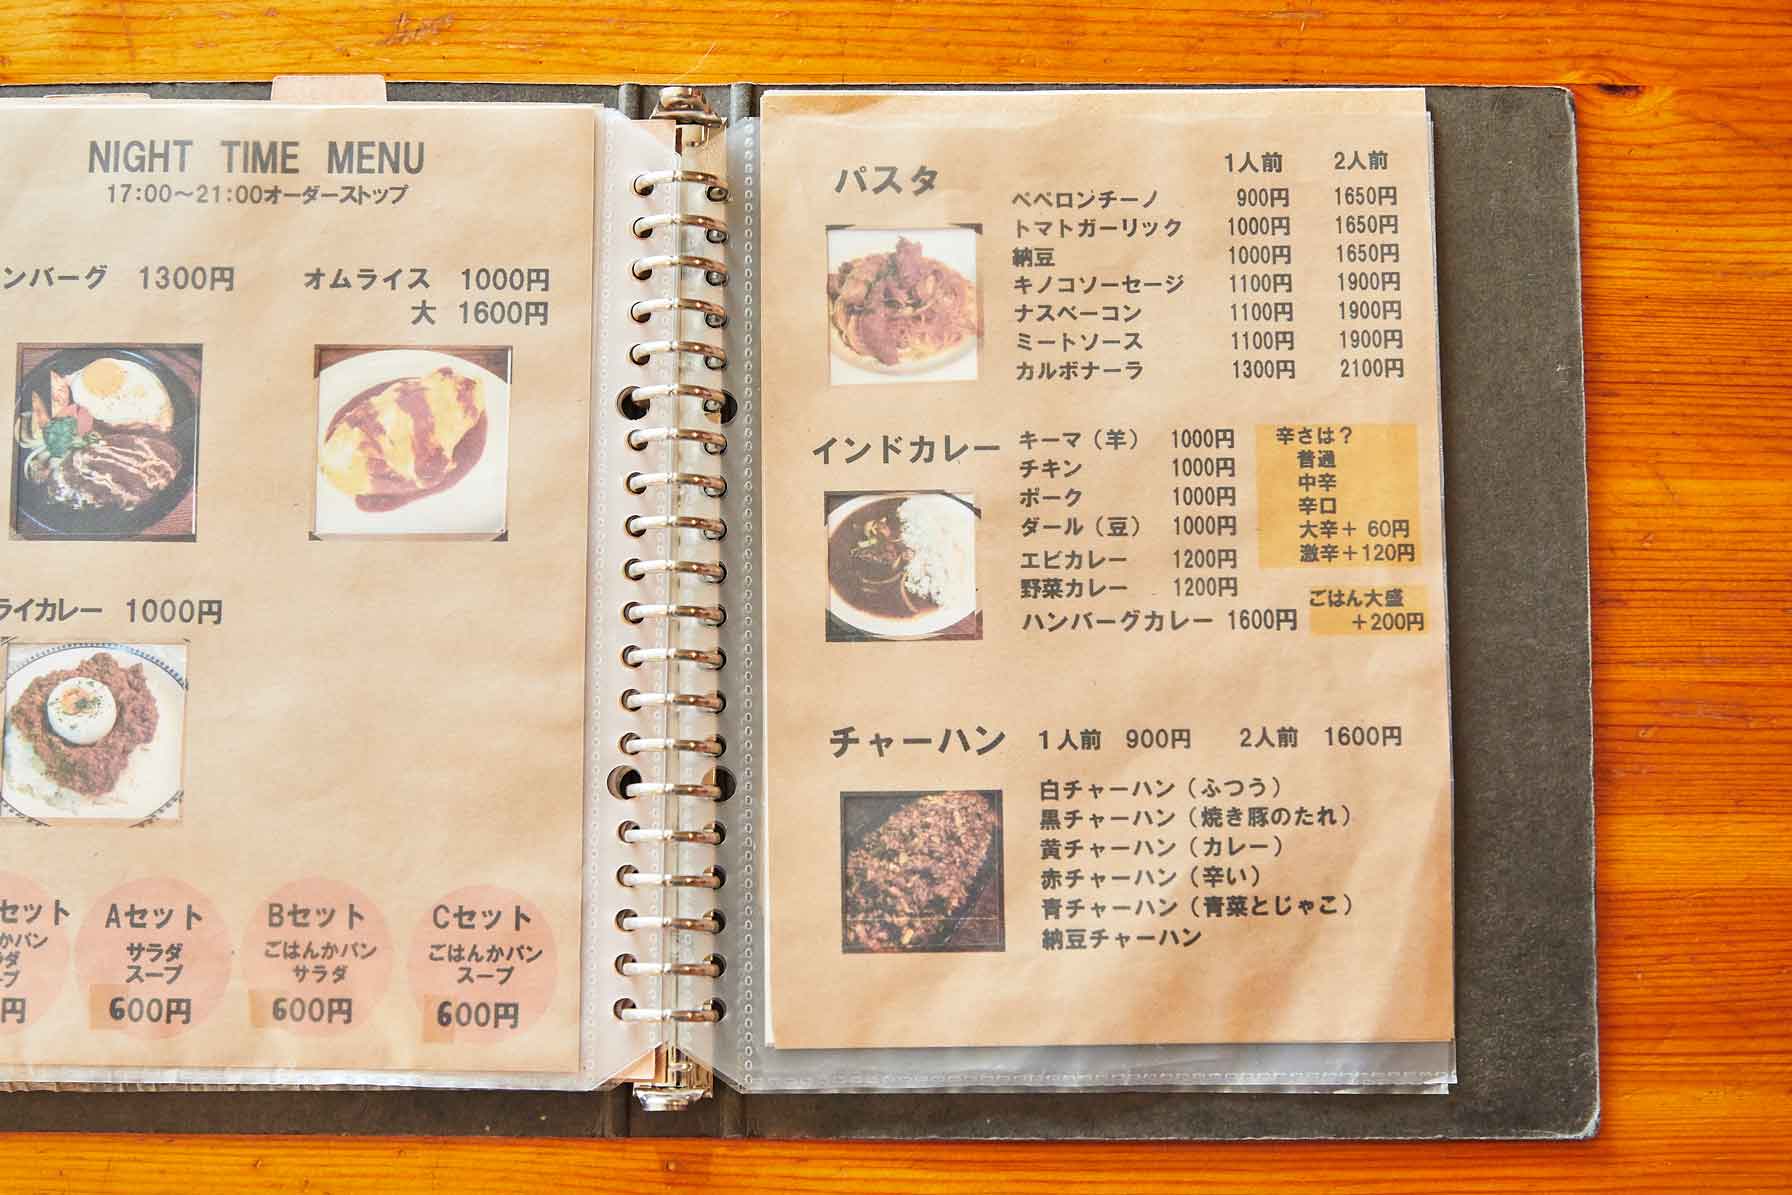 NIGHT TIME MENU
17:00～21:00オーダーストップ
ンバーグ 1300円
オムライス 1000円
大 1600円
ライカレー 1000円
セット
かパン
ラダ
ープ
円
Aセット
サラダ
スープ
600円
Bセット
ごはんかパン
サラダ
600円
Cセット
ごはんかパン
スープ
600円
パスタ
1人前 2人前
ペペロンチーノ 900円 1650円
トマトガーリック 1000円 1650円
納豆 1000円 1650円
キノコソーセージ 1100円 1900円
ナスベーコン 1100円 1900円
ミートソース 1100円 1900円
カルボナーラ 1300円 2100円
インドカレー
キーマ（羊） 1000円
チキン 1000円
ポーク 1000円
ダール（豆） 1000円
エビカレー 1200円
野菜カレー 1200円
ハンバーグカレー 1600円
辛さは？
普通
中辛
辛口
大辛＋ 60円
激辛＋120円
ごはん大盛
＋200円
チャーハン 1人前 900円 2人前 1600円
白チャーハン（ふつう）
黒チャーハン（焼き豚のたれ）
黄チャーハン（カレー）
赤チャーハン（辛い）
青チャーハン（青菜とじゃこ）
納豆チャーハン